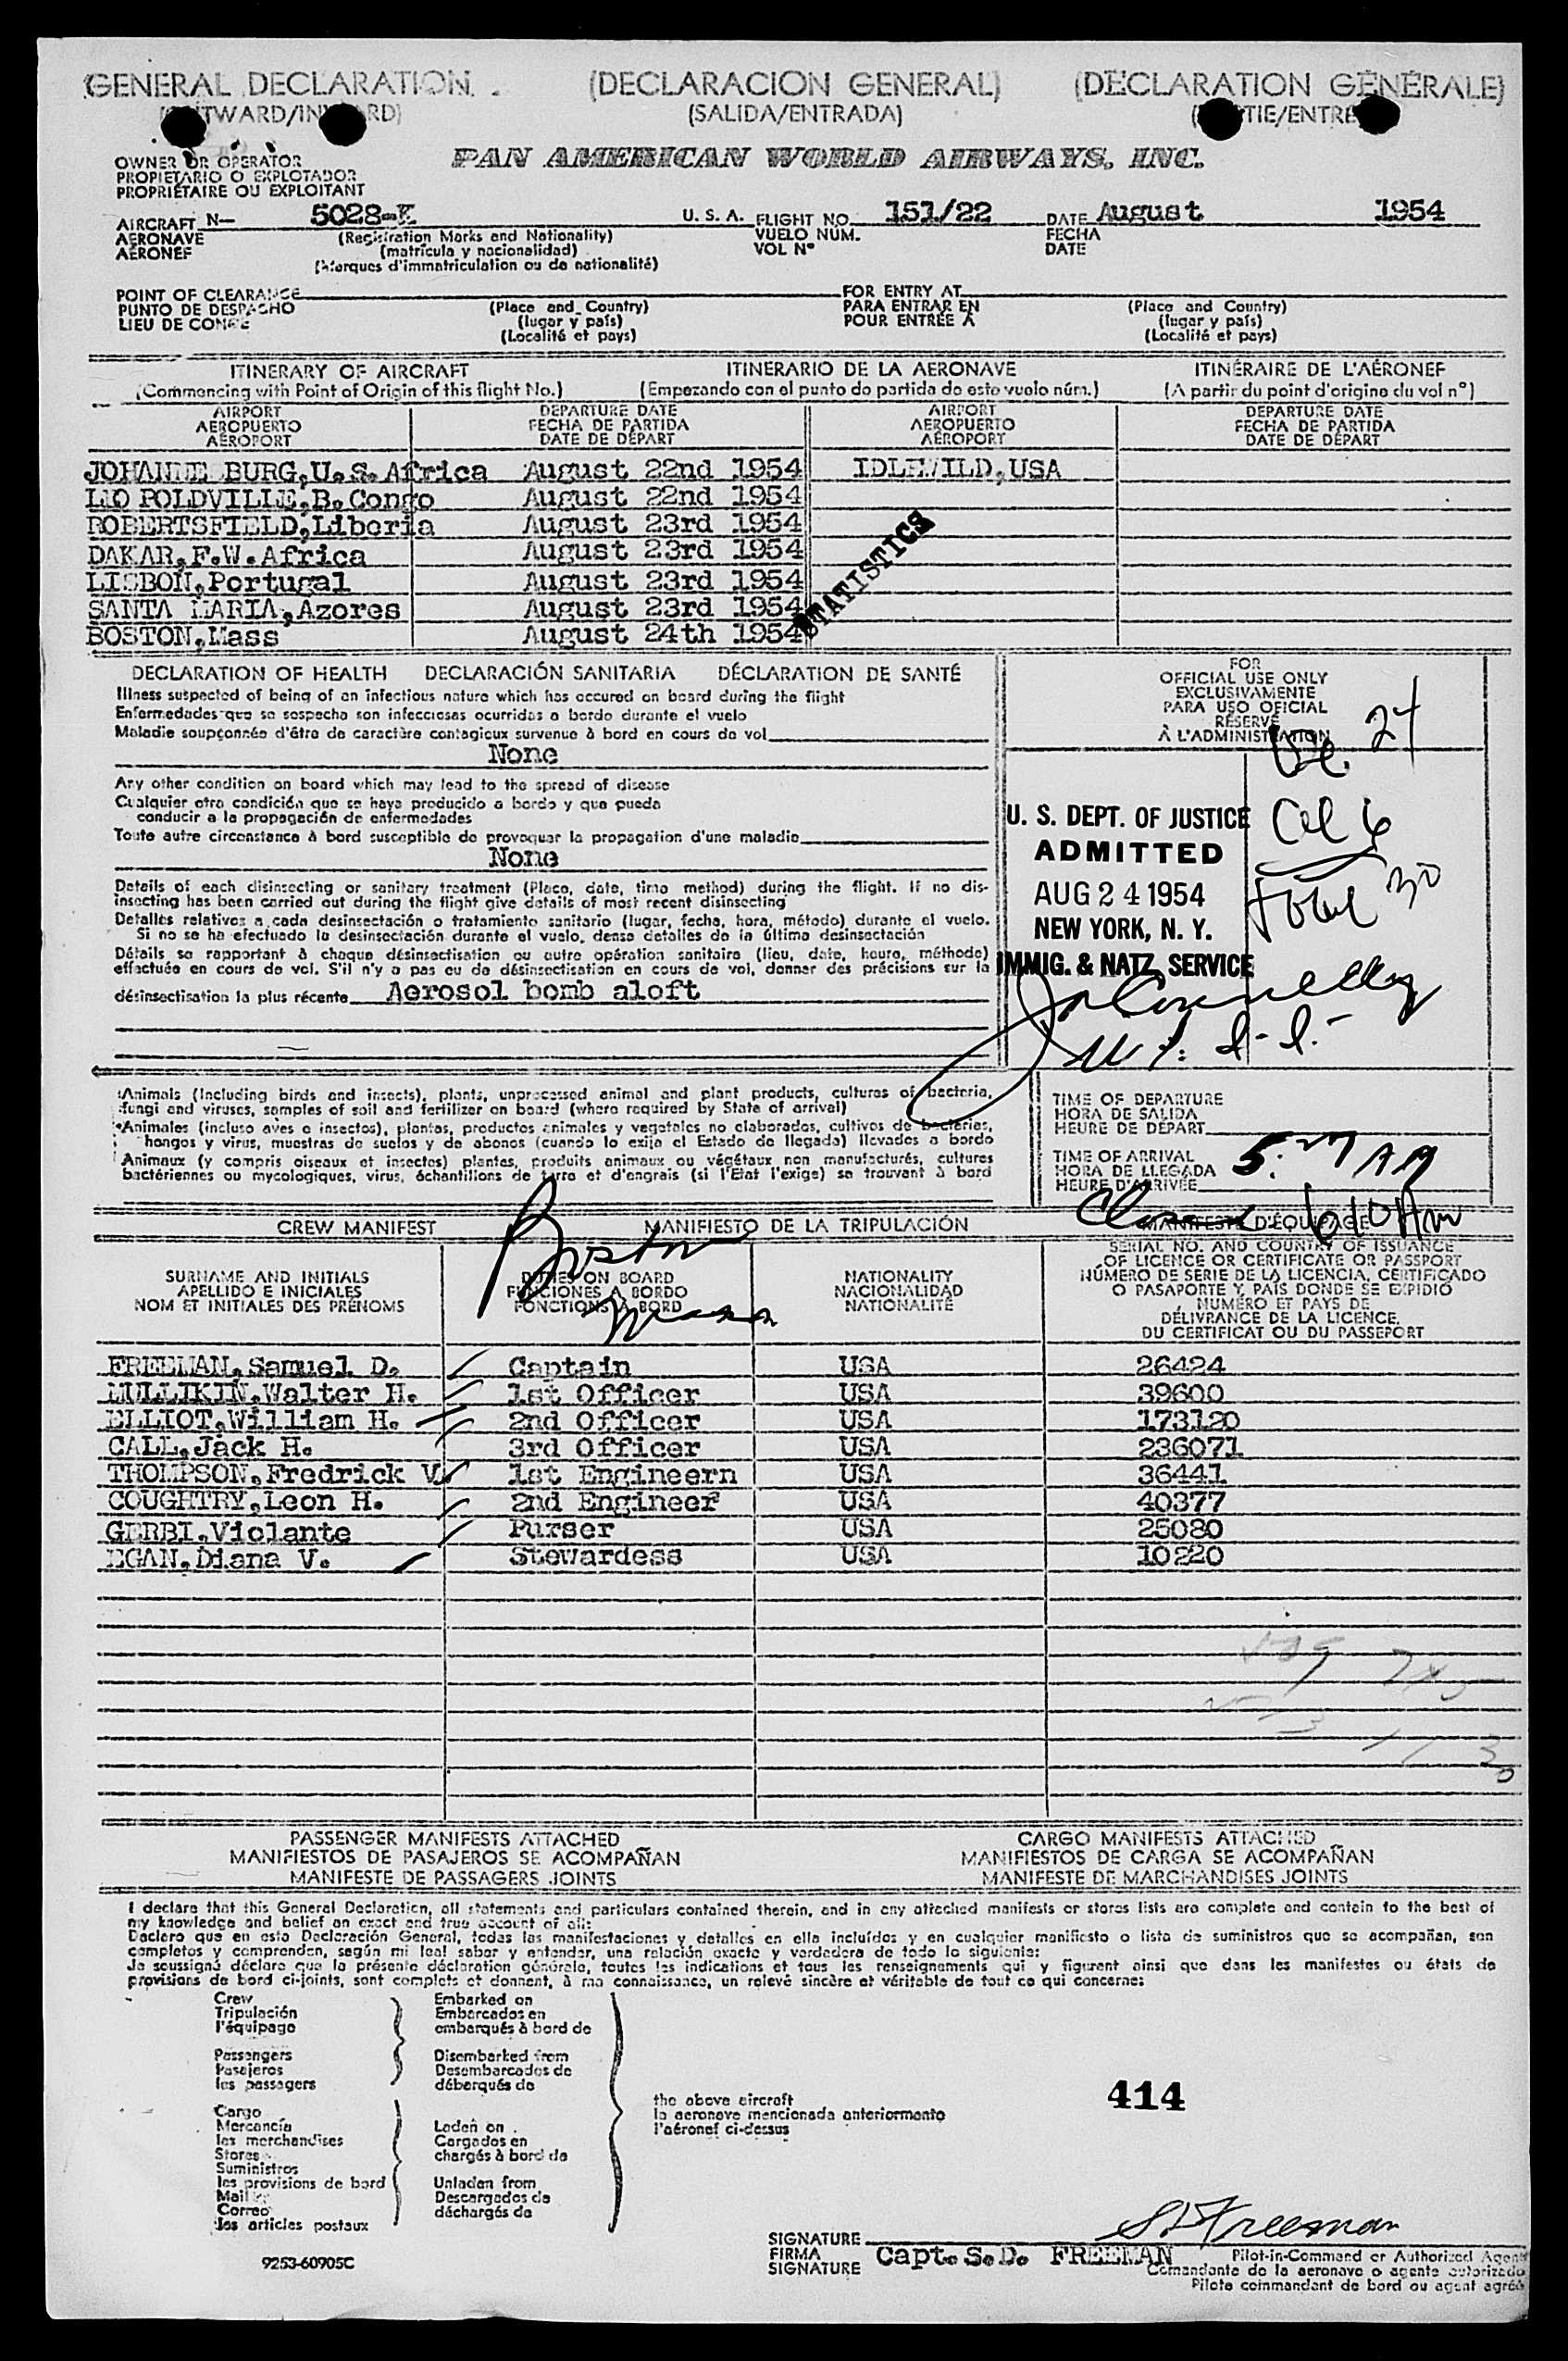 GENERAL DECLARATION. (DECLARACION GENERAL) (DÉCLARATION GÉNÉRALE)
(SALIDA/ENTRADA)
OWNER OR OPERATOR
PROPIETARIO O EXPLOTADOR
PROPRIÉTAIRE OU EXPLOITANT
PAN AMERICAN WORLD AIRWAYS, INC.
AIRCRAFT N— 5028-K U. S. A. FLIGHT NO. 151/22 DATE August 1954
AERONAVE (Registration Marks and Nationality) VUELO NÚM. FECHA
AÉRONEF (matrícula y nacionalidad) VOL Nº DATE
(Marques d'immatriculation ou de nationalité)
POINT OF CLEARANCE FOR ENTRY AT
PUNTO DE DESPACHO (Place and Country) PARA ENTRAR EN (Place and Country)
LIEU DE CONGÉ (lugar y país) POUR ENTRÉE À (lugar y país)
(Localité et pays) (Localité et pays)
ITINERARY OF AIRCRAFT ITINERARIO DE LA AERONAVE ITINÉRAIRE DE L'AÉRONEF
(Commencing with Point of Origin of this flight No.) (Empezando con el punto de partida de este vuelo núm.) (A partir du point d'origine du vol nº)
AIRPORT DEPARTURE DATE AIRPORT DEPARTURE DATE
AEROPUERTO FECHA DE PARTIDA AEROPUERTO FECHA DE PARTIDA
AÉROPORT DATE DE DÉPART AÉROPORT DATE DE DÉPART
JOHANNE BURG,U.S.Africa August 22nd 1954 IDLEWILD,USA
LEO POLDVILLE,B.Congo August 22nd 1954
ROBERTSFIELD,Liberia August 23rd 1954
DAKAR,F.W.Africa August 23rd 1954
LISBON,Portugal August 23rd 1954
SANTA MARIA,Azores August 23rd 1954
BOSTON,Mass August 24th 1954
STATISTICS
DECLARATION OF HEALTH DECLARACIÓN SANITARIA DÉCLARATION DE SANTÉ
Illness suspected of being of an infectious nature which has occured on board during the flight
Enfermedades que se sospecha son infecciosas ocurridas a bordo durante el vuelo
Maladie soupçonnée d'être de caractère contagieux survenue à bord en cours de vol
None
Any other condition on board which may lead to the spread of disease
Cualquier otra condición que se haya producido a bordo y que pueda
conducir a la propagación de enfermedades
Toute autre circonstance à bord susceptible de provoquer la propagation d'une maladie
None
Details of each disinsecting or sanitary treatment (Place, date, time method) during the flight. If no dis-
insecting has been carried out during the flight give details of most recent disinsecting
Detalles relativos a cada desinsectación o tratamiento sanitario (lugar, fecha, hora, método) durante el vuelo.
Si no se ha efectuado la desinsectación durante el vuelo, dense detalles de la última desinsectación
Détails se rapportant à chaque désinsectisation ou autre opération sanitaire (lieu, date, heure, méthode)
effectuée en cours de vol. S'il n'y a pas eu de désinsectisation en cours de vol, donner des précisions sur la
désinsectisation la plus récente Aerosol bomb aloft
FOR
OFFICIAL USE ONLY
EXCLUSIVAMENTE
PARA USO OFICIAL
RÉSERVÉ
À L'ADMINISTRATION
24
U. S. DEPT. OF JUSTICE
ADMITTED
AUG 24 1954
NEW YORK, N. Y.
IMMIG. & NATZ. SERVICE
Total 30
Animals (Including birds and insects), plants, unprocessed animal and plant products, cultures of bacteria,
fungi and viruses, samples of soil and fertilizer on board (where required by State of arrival)
Animales (incluso aves e insectos), plantas, productos animales y vegetales no elaborados, cultivos de bacterias,
hongos y virus, muestras de suelos y de abonos (cuando lo exija el Estado de llegada) llevados a bordo
Animaux (y compris oiseaux et insectes) plantes, produits animaux ou végétaux non manufacturés, cultures
bactériennes ou mycologiques, virus, échantillons de terre et d'engrais (si l'Etat l'exige) se trouvant à bord
TIME OF DEPARTURE
HORA DE SALIDA
HEURE DE DÉPART
TIME OF ARRIVAL
HORA DE LLEGADA
HEURE D'ARRIVÉE
610 AM
CREW MANIFEST MANIFIESTO DE LA TRIPULACIÓN MANIFESTE D'ÉQUIPAGE
Boston
Mass
SURNAME AND INITIALS
APELLIDO E INICIALES
NOM ET INITIALES DES PRÉNOMS
DUTIES ON BOARD
FUNCIONES A BORDO
FONCTIONS À BORD
NATIONALITY
NACIONALIDAD
NATIONALITÉ
SERIAL NO. AND COUNTRY OF ISSUANCE
OF LICENCE OR CERTIFICATE OR PASSPORT
NÚMERO DE SERIE DE LA LICENCIA, CERTIFICADO
O PASAPORTE Y PAÍS DONDE SE EXPIDIÓ
NUMÉRO ET PAYS DE
DÉLIVRANCE DE LA LICENCE,
DU CERTIFICAT OU DU PASSEPORT
FREEMAN,Samuel D. Captain USA 26424
MULLIKIN,Walter H. 1st Officer USA 39600
ELLIOT,William H. 2nd Officer USA 173120
CALL,Jack H. 3rd Officer USA 236071
THOMPSON,Fredrick V. 1st Engineern USA 36441
COUGHTRY,Leon H. 2nd Engineer USA 40377
GERBI,Violante Purser USA 25080
EGAN,Diana V. Stewardess USA 10220
PASSENGER MANIFESTS ATTACHED CARGO MANIFESTS ATTACHED
MANIFIESTOS DE PASAJEROS SE ACOMPAÑAN MANIFIESTOS DE CARGA SE ACOMPAÑAN
MANIFESTE DE PASSAGERS JOINTS MANIFESTE DE MARCHANDISES JOINTS
I declare that this General Declaration, all statements and particulars contained therein, and in any attached manifests or stores lists are complete and contain to the best of
my knowledge and belief an exact and true account of all:
Declaro que en esta Declaración General, todas las manifestaciones y detalles en ella incluídos y en cualquier manifiesto o lista de suministros que se acompañan, son
completos y comprenden, según mi leal saber y entender, una relación exacta y verdadera de todo lo siguiente:
Je soussigné déclare que la présente déclaration générale, toutes les indications et tous les renseignements qui y figurent ainsi que dans les manifestes ou états de
provisions de bord ci-joints, sont complets et donnent, à ma connaissance, un relevé sincère et véritable de tout ce qui concerne:
Crew Embarked on
Tripulación Embarcados en
l'équipage embarqués à bord de
Passengers Disembarked from
Pasajeros Desembarcados de
les passagers débarqués de
the above aircraft
la aeronave mencionada anteriormente
l'aéronef ci-dessus
414
Cargo
Mercancía Laden on
les merchandises Cargados en
Stores chargés à bord de
Suministros
les provisions de bord Unladen from
Mail Descargados de
Correo déchargés de
les articles postaux
S D Freeman
SIGNATURE
FIRMA Capt. S.D. FREEMAN Pilot-in-Command or Authorized Agent
SIGNATURE Comandante de la aeronave o agente autorizado
Pilote commandant de bord ou agent agréé
9253-60905C